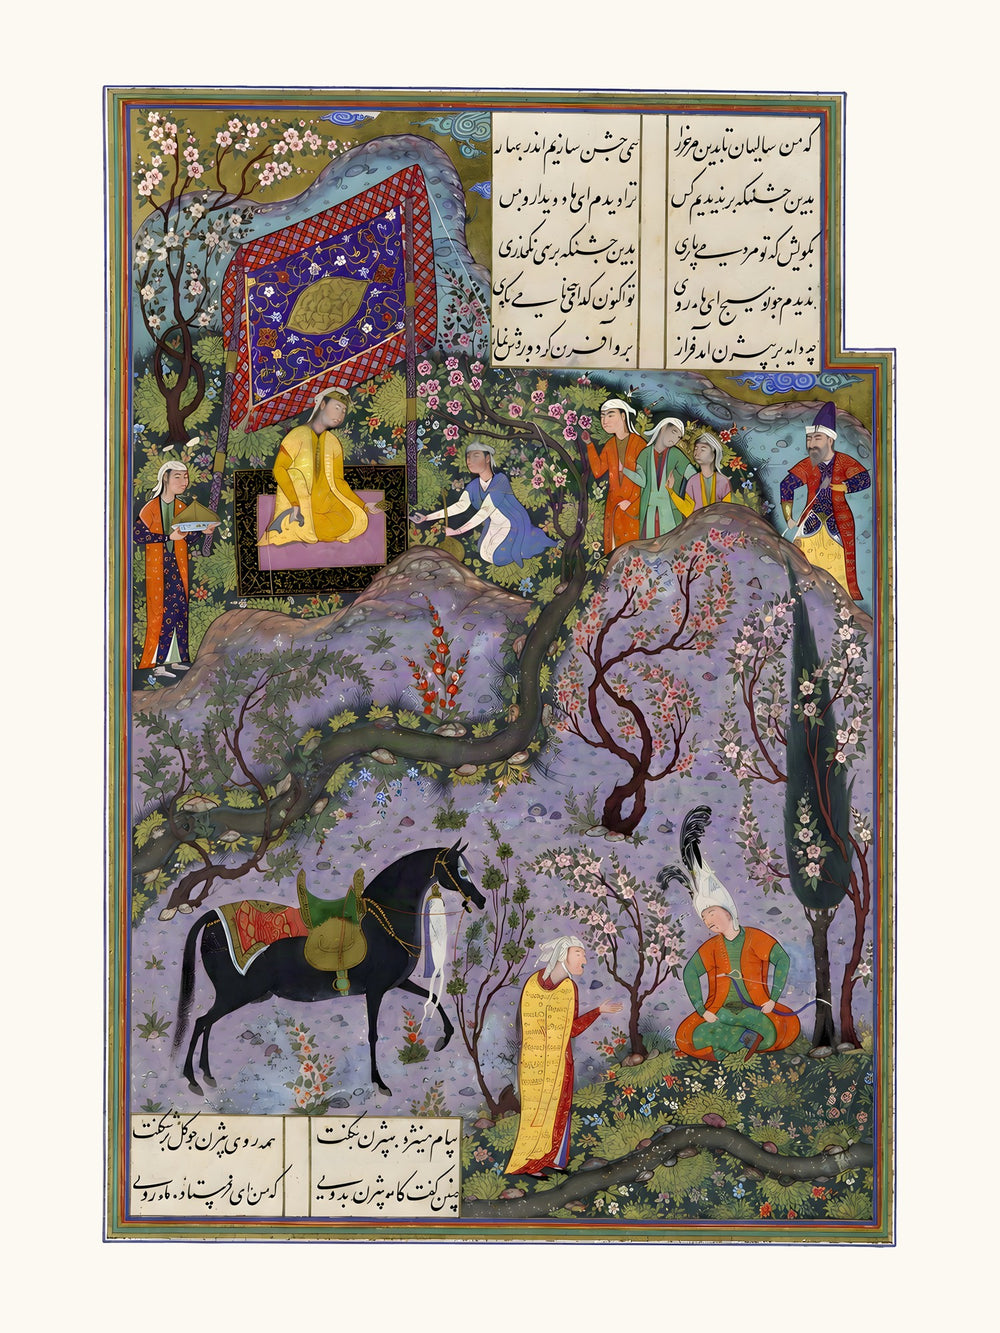 که من سالیان تا بدین مرغزار همی جشن سازیم اندر بهار
بدین جشنگه بر ندیدیم کس ترا دیدم ای ماه دیدار و بس
بکویش که تو مردمی یا پری بدین جشنگه بر همی بگذری
ندیدم جو تو هیچ ای ماه روی تو اکنون بکوی
چو دایه بر بیژن آمد فراز برو آفرین کرد و بردش نماز
پیام منیژه به بیژن بگفت همه روی بیژن جو گل بر شکفت
چنین گفت بیژن بدوی که من ای فرستاده ماه روی